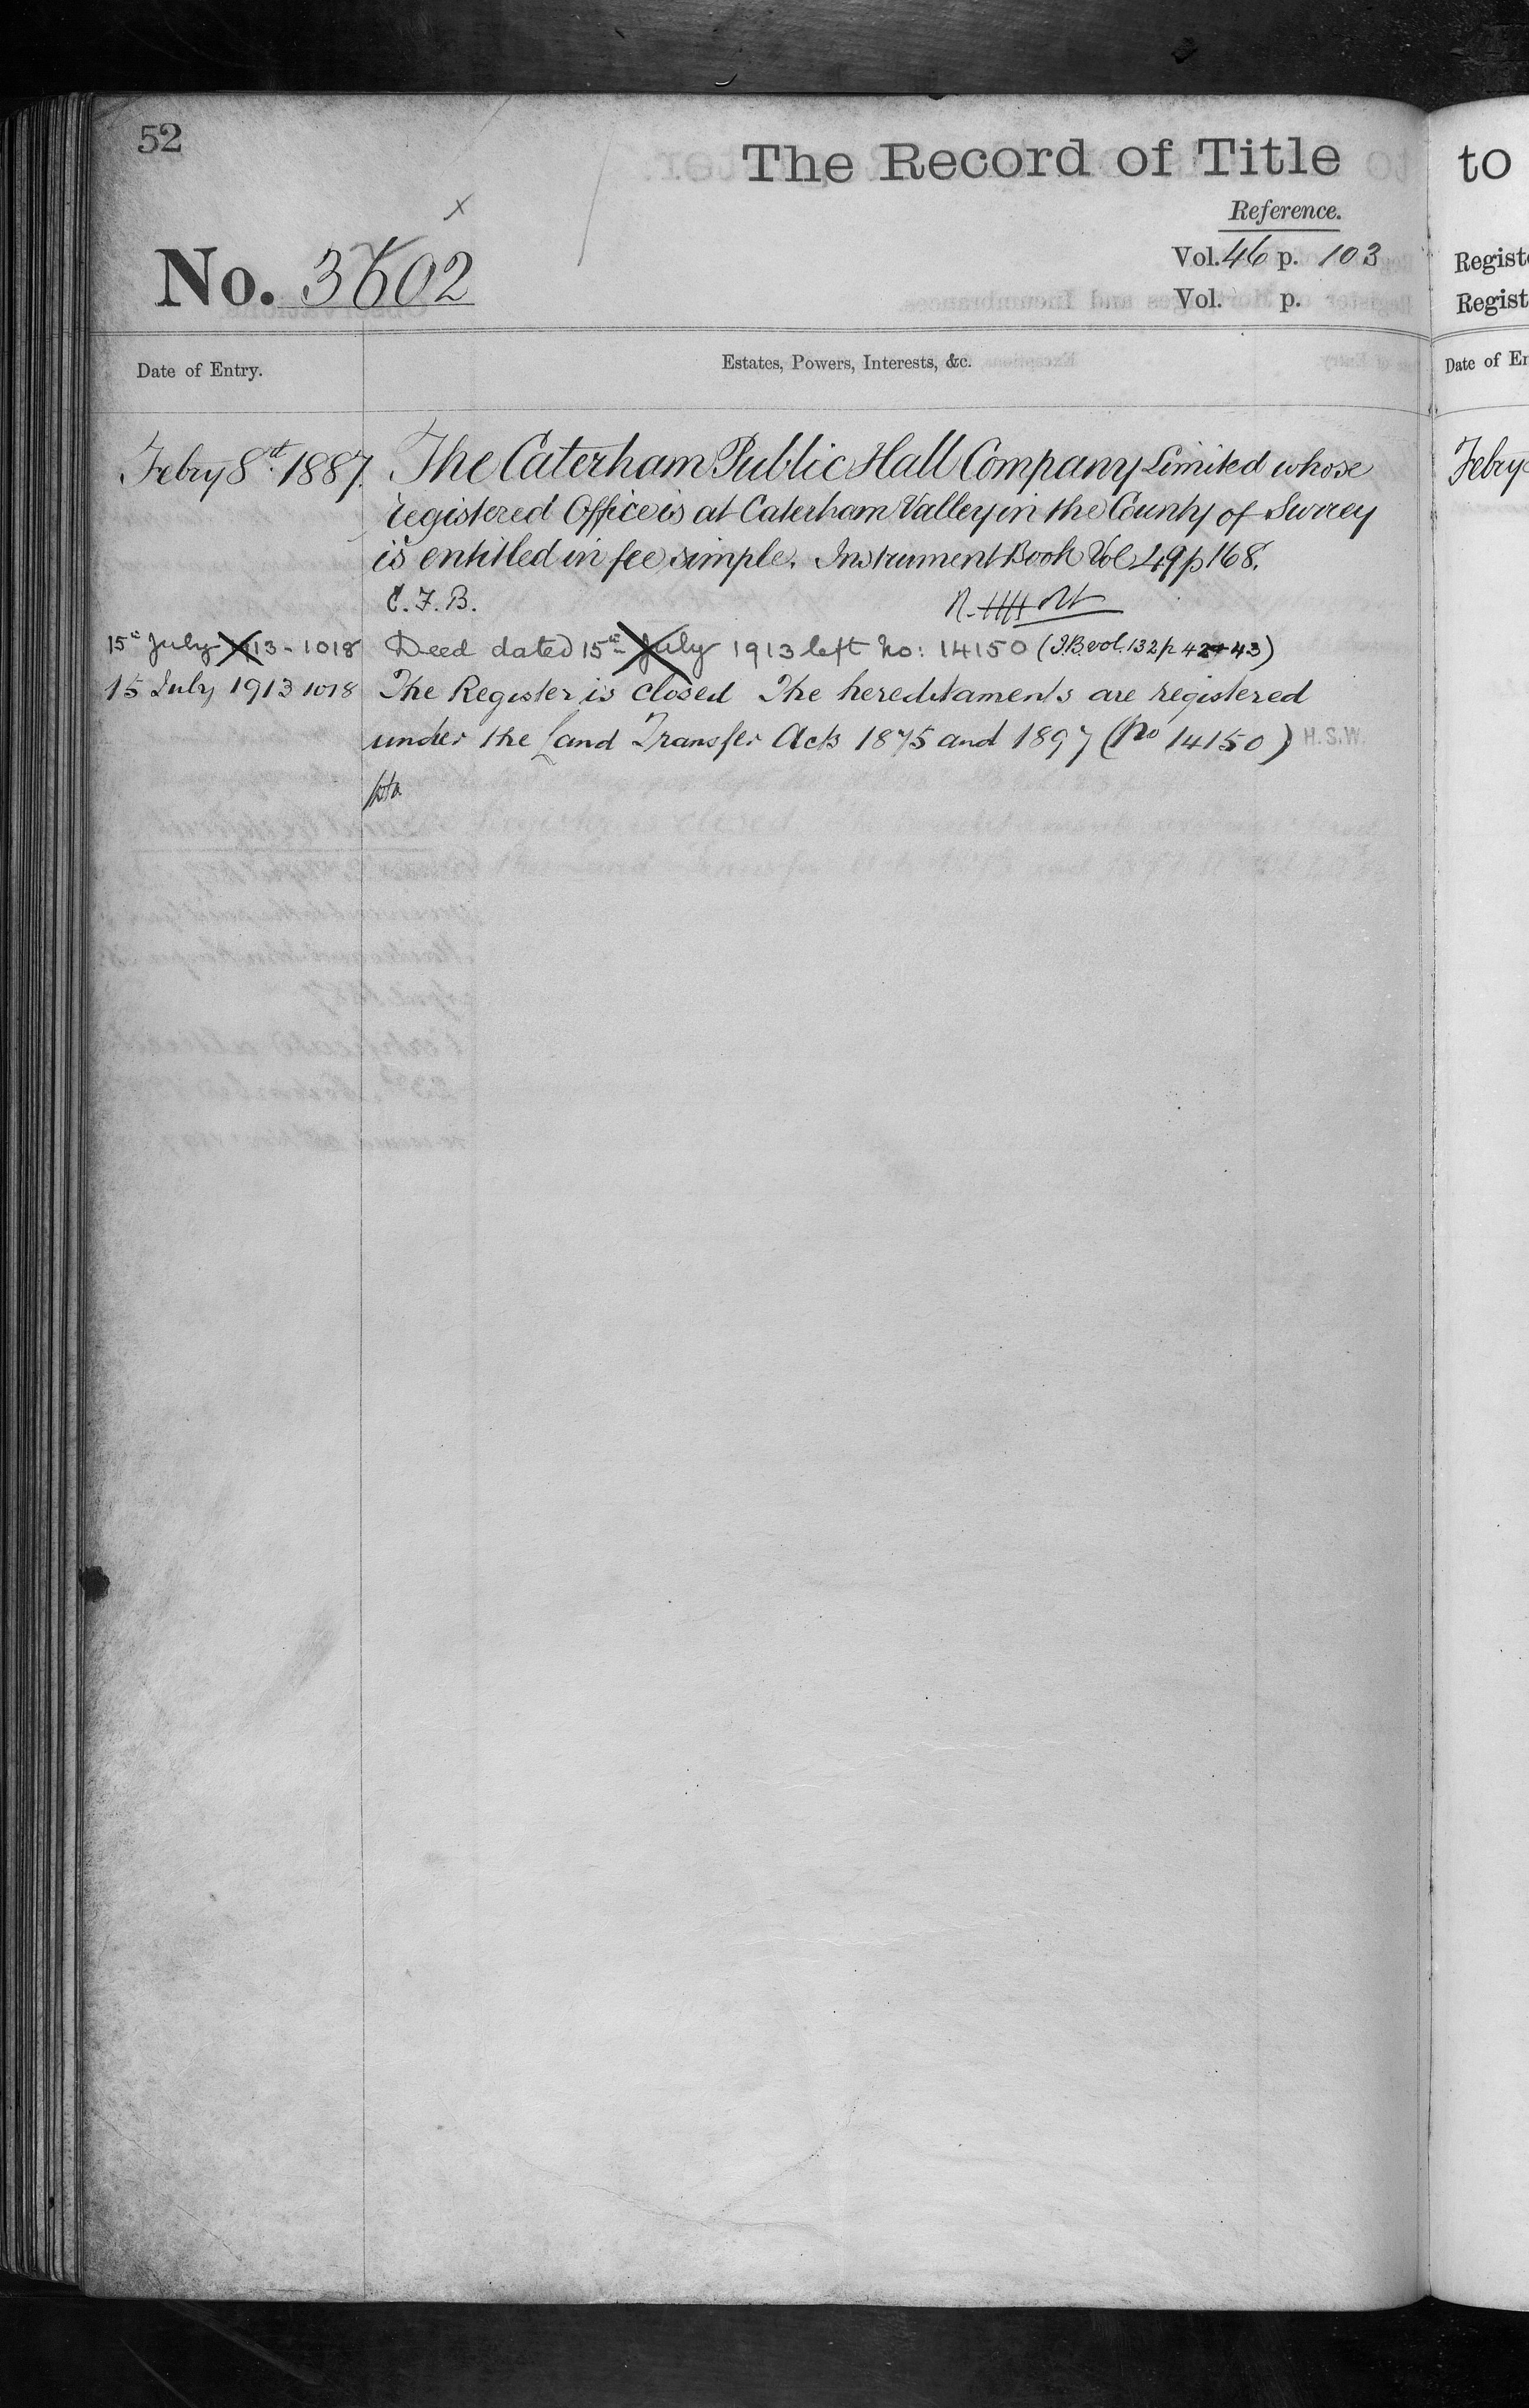 52
The Record of Title
Reference.
No. 3602
Vol. 46 p. 103
Vol. p.
Date of Entry.
Estates, Powers, Interests, &c.
Febry 8th 1887. The Caterham Public Hall Company Limited whose
registered Office is at Caterham Valley in the County of Surrey
is entitled in fee simple. Instrument Book Vol 49 p 168.
C. F. B.
15th July 1913 - 1018 Deed dated 15th July 1913 left No: 14150 (I.B. vol. 132 p 42 + 43)
15 July 1913 1018 The Register is closed The hereditaments are registered
under the Land Transfer Acts 1875 and 1897 (No 14150) H.S.W.
to
Regist
Regist
Date of En
Febry